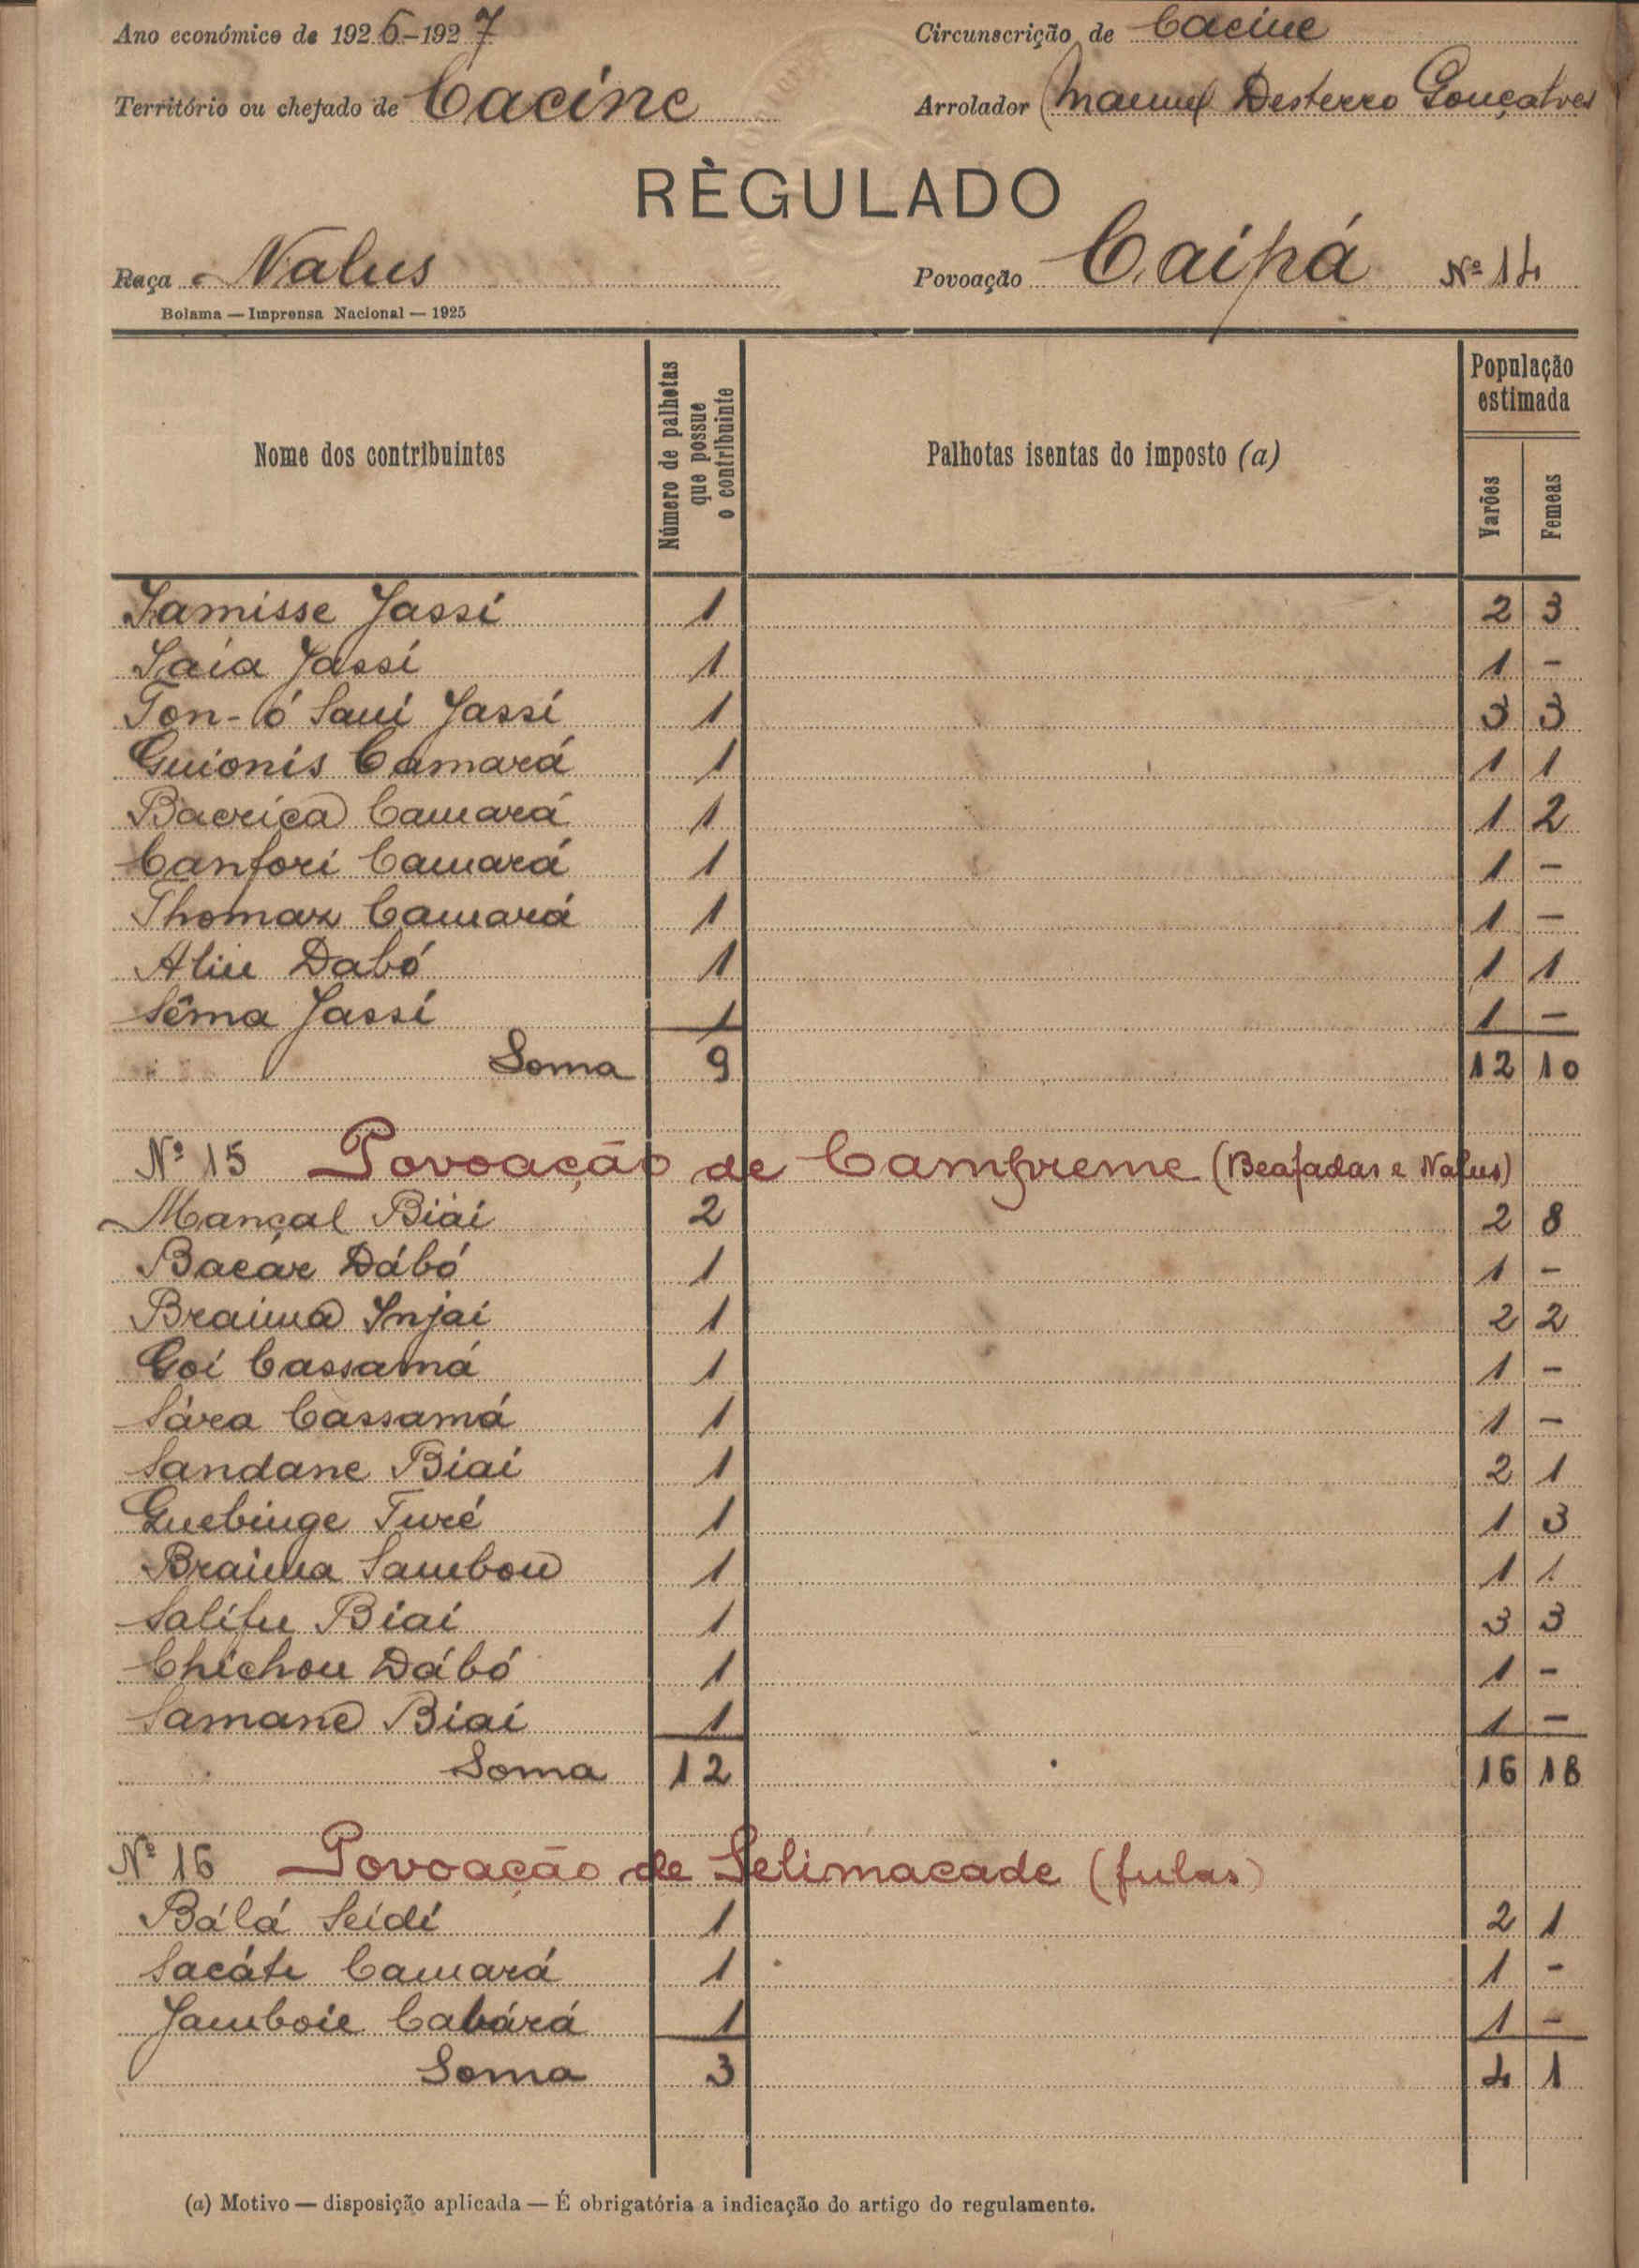 Ano económico de 1926-1927 Circunscrição de Cacine
Território ou chefado de Cacine Arrolador Manuel Desterro Gonçalves
RÈGULADO
Raça Nalus Povoação Caipá Nº 14
Bolama — Imprensa Nacional — 1925
Nome dos contribuintes Número de palhotas que possue o contribuinte Palhotas isentas do imposto (a) População estimada Varões Femeas
Samisse Jassi 1 2 3
Saia Jassi 1 1 -
Ton-ó Saui Jassi 1 3 3
Guionis Camará 1 1 1
Bacrica Camará 1 1 2
Canfori Camará 1 1 -
Thomaz Camará 1 1 -
Aliu Dabó 1 1 1
Sêma Jassi 1 1 -
Soma 9 12 10
Nº 15 Povoação de Campreme (Beafadas e Nalus)
Mançal Biai 2 2 8
Bacár Dábó 1 1 -
Braima Injai 1 2 2
Goi Cassamá 1 1 -
Sára Cassamá 1 1 -
Sandane Biai 1 2 1
Guebinge Turé 1 1 3
Braima Sambou 1 1 1
Salifu Biai 1 3 3
Chichou Dábó 1 1 -
Samane Biai 1 1 -
Soma 12 16 18
Nº 16 Povoação de Selimacade (fulas)
Bálá Seidi 1 2 1
Sacáti Camará 1 1 -
Jamboie Cabárá 1 1 -
Soma 3 4 1
(a) Motivo — disposição aplicada — É obrigatória a indicação do artigo do regulamento.